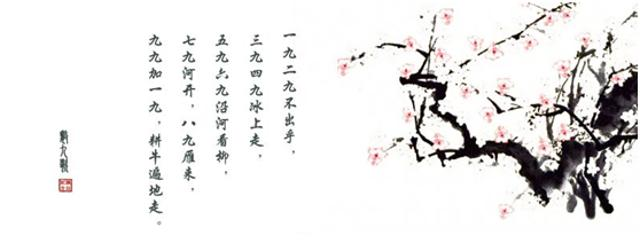 一九二九不出乎，
三九四九冰上走，
五九六九沿河看柳，
七九河开，八九雁来，
九九加一九，耕牛遍地走。
數九歌